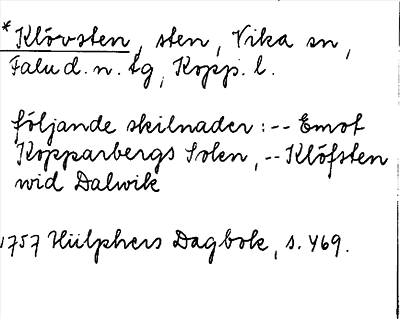 * Klövsten, sten, Vika sn,
Falu d. n. tg, Kopp. l.
följande skilnader: -- Emot
Kopparbergs Solen, -- Klöfsten
wid Dalwik
1757 Hülphers Dagbok, s. 469.